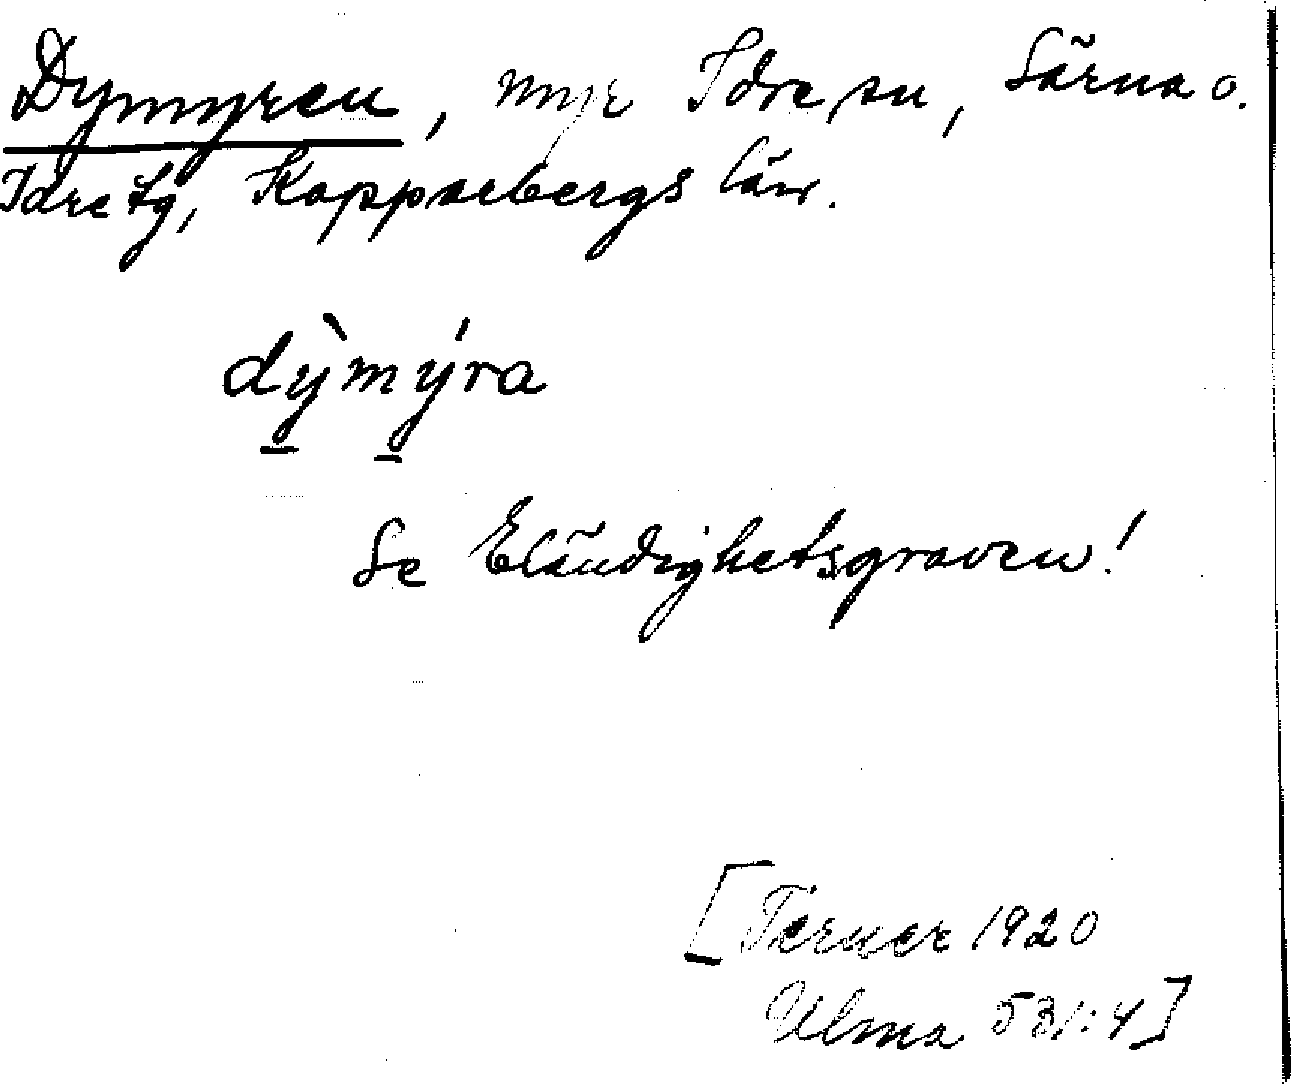 Dymyren, myr Idre sn, Särna o.
Idre tg, Kopparbergs län.
dỳmýra
Se Eländighetsgraven!
[Terner 1920
Ulma 531:4]